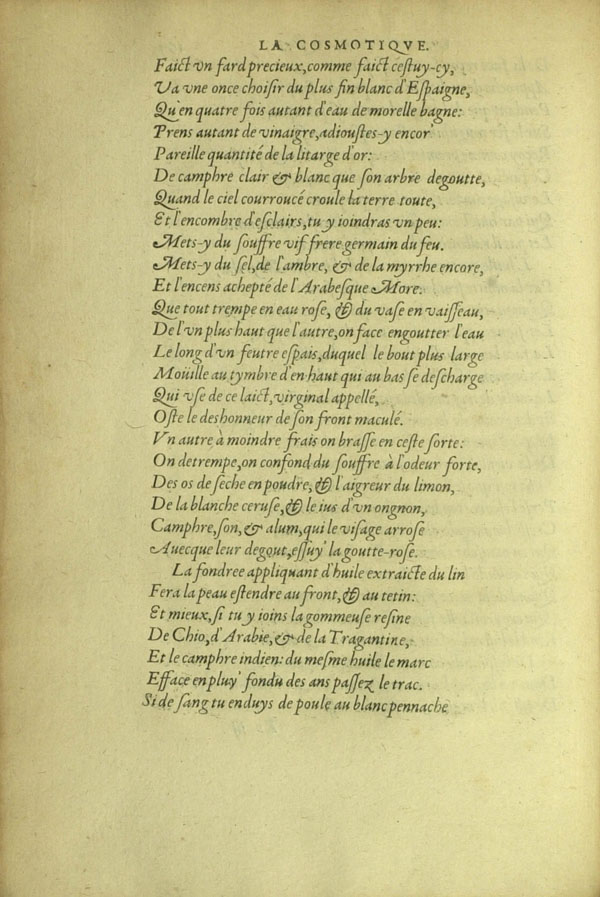 LA COSMOTIQVE.
Faict vn fard precieux, comme faict cestuy-cy,
Va vne once choisir du plus fin blanc d'Espaigne,
Qu'en quatre fois autant d'eau de morelle bagne:
Prens autant de vinaigre, adioustes-y encor
Pareille quantité de la litarge d'or:
De camphre clair & blanc que son arbre degoutte,
Quand le ciel courroucé croule la terre toute,
Et l'encombre d'esclairs, tu y ioindras vn peu:
Mets-y du souffre vif frere germain du feu.
Mets-y du sel, de l'ambre, & de la myrrhe encore,
Et l'encens achepté de l'Arabesque More.
Que tout trempe en eau rose, & du vase en vaisseau,
De l'vn plus haut que l'autre, on face engoutter l'eau
Le long d'vn feutre espais, duquel le bout plus large
Moüille au tymbre d'en haut qui au bas se descharge
Qui vse de ce laict, virginal appellé,
Oste le deshonneur de son front maculé.
Vn autre à moindre frais on brasse en ceste sorte:
On detrempe, on confond du souffre à l'odeur forte,
Des os de sèche en poudre, & l'aigreur du limon,
De la blanche ceruse, & le ius d'vn ongnon,
Camphre, son, & alum, qui le visage arrose
Auecque leur degout, essuy' la goutte-rose.
La fondree appliquant d'huile extraicte du lin
Fera la peau estendre au front, & au tetin:
Et mieux, si tu y ioins la gommeuse resine
De Chio, d'Arabie, & de la Tragantine,
Et le camphre indien: du mesme huile le marc
Efface en pluy' fondu des ans passez le trac.
Si de sang tu enduys de poule au blanc pennache